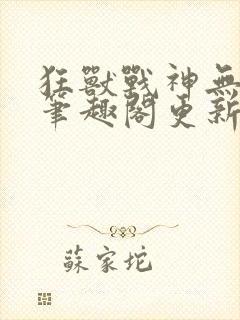 狂獸戰神無
筆趣閣更新
蘇家坨